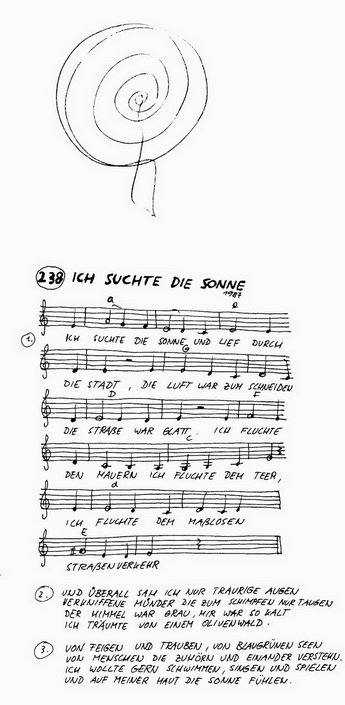 238 ICH SUCHTE DIE SONNE
1987
a
1. ICH SUCHTE DIE SONNE UND LIEF DURCH
G
DIE STADT, DIE LUFT WAR ZUM SCHNEIDEN
D F
DIE STRAßE WAR GLATT. ICH FLUCHTE
C
DEN MAUERN ICH FLUCHTE DEM TEER,
d
ICH FLUCHTE DEM MAßLOSEN
E
STRAßENVERKEHR
2. UND ÜBERALL SAH ICH NUR TRAURIGE AUGEN
VERKNIFFENE MÜNDER DIE ZUM SCHIMPFEN NUR TAUGEN
DER HIMMEL WAR GRAU, MIR WAR SO KALT
ICH TRÄUMTE VON EINEM OLIVENWALD.
3. VON FEIGEN UND TRAUBEN, VON BLAUGRÜNEN SEEN
VON MENSCHEN DIE ZUHÖRN UND EINANDER VERSTEHN.
ICH WOLLTE GERN SCHWIMMEN, SINGEN UND SPIELEN
UND AUF MEINER HAUT DIE SONNE FÜHLEN.